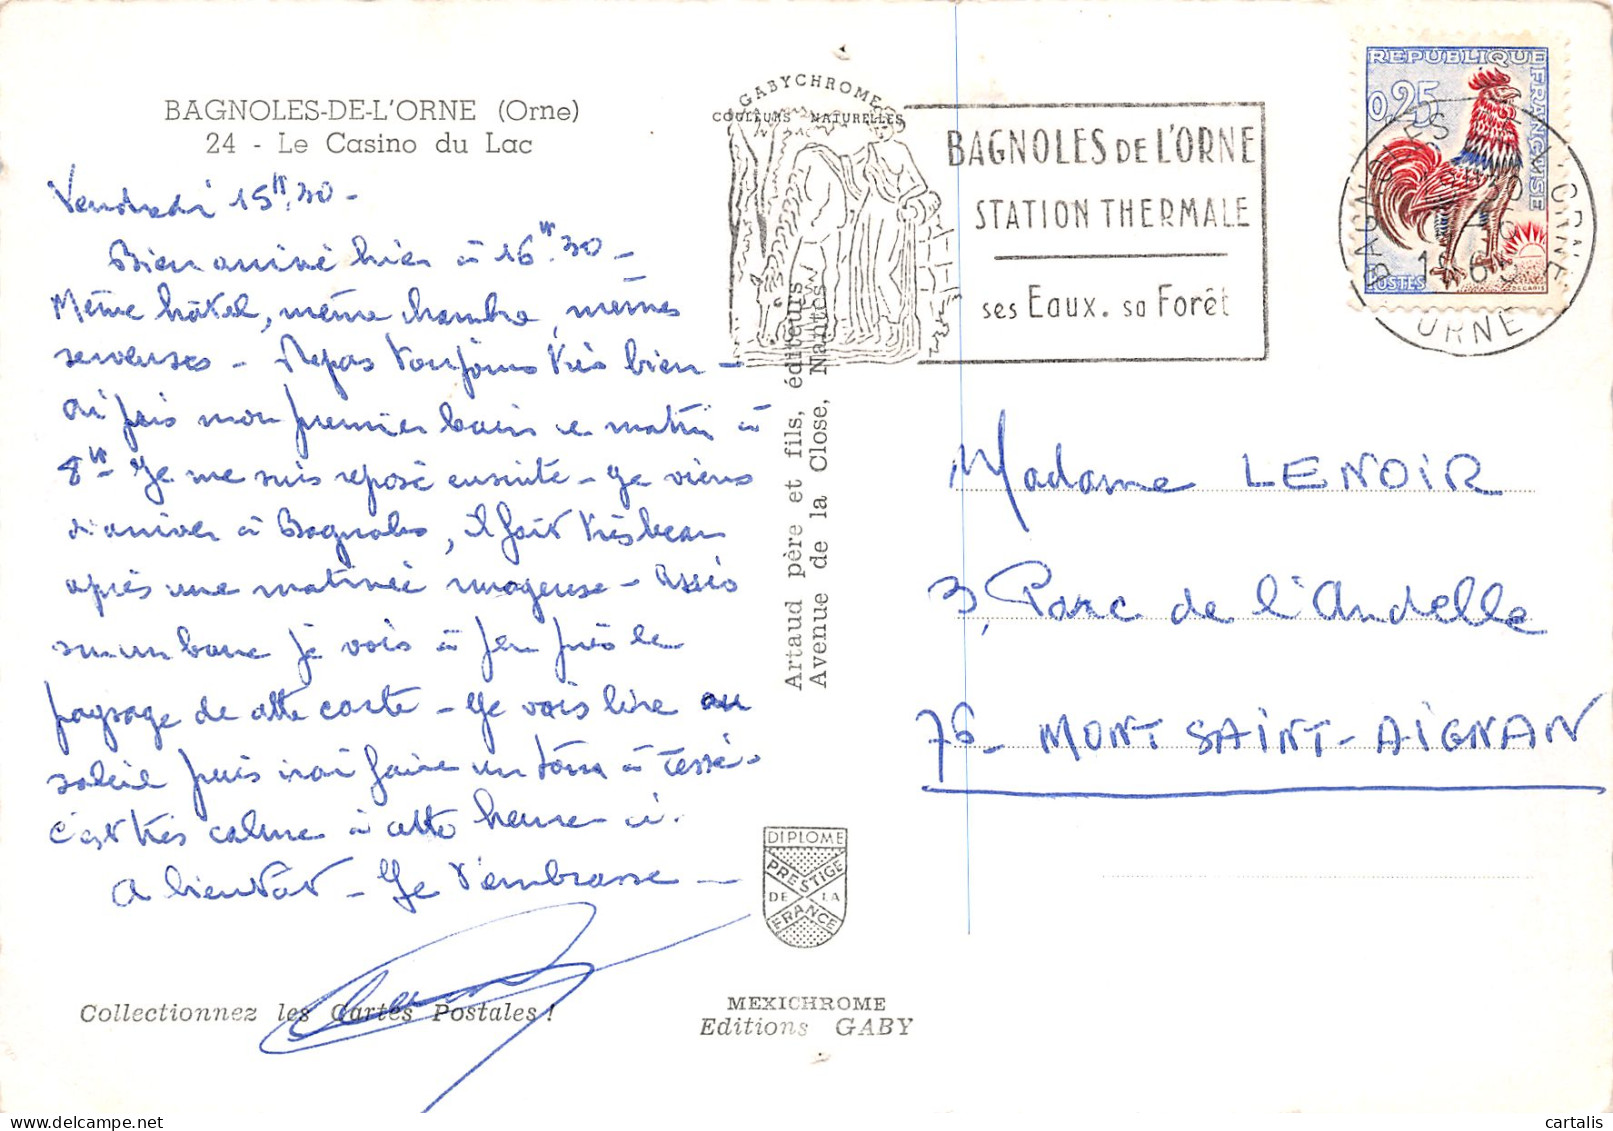 BAGNOLES-DE-L'ORNE (Orne)
24 - Le Casino du Lac
Vendredi 15H,30 -
Bien arrivé hier à 16H,30 -
Même hôtel, même chambre, mêmes
serveuses - Repas toujours très bien -
ai pris mon premier bain ce matin à
8H - Je me suis reposé ensuite - Je viens
d'arriver à Bagnoles, il fait très beau
après une matinée nuageuse - Assis
sur un banc je vois à peu près le
paysage de cette carte - Je vais lire au
soleil puis irai faire un tour à Tessé -
C'est très calme à cette heure ci.
A bientôt - Je t'embrasse -
Collectionnez les Cartes Postales !
GABYCHROME
COULEURS NATURELLES
Artaud père et fils, éditeurs
Avenue de la Close, Nantes
DIPLOME
PRESTIGE
DE LA
FRANCE
MEXICHROME
Editions GABY
BAGNOLES DE L'ORNE
STATION THERMALE
ses Eaux. sa Forêt
REPUBLIQUE FRANCAISE
0,25
POSTES
DECARIS
BAGNOLES DE L'ORNE
ORNE
Madame LENOIR
3, Parc de l'Andelle
76 - MONT SAINT-AIGNAN
cartalis